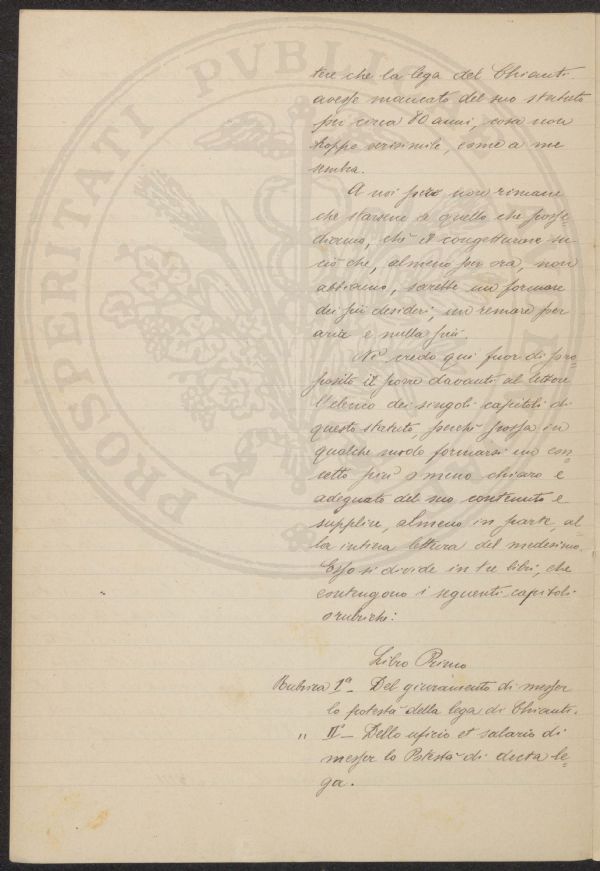 tere che la lega del Chianti
avesse mancato del suo statuto
per circa 80 anni, cosa non
troppo verisimile, come a me
sembra.
A noi però non rimane
che starsene a quello che posse
diamo, chè il congetturare su
ciò che, almeno per ora, non
abbiamo, sarebbe un formare
dei pii desideri, un remare per
aria e nulla più.
Nè credo qui fuor di pro=
posito il porre davanti al lettore
l'elenco dei singoli capitoli di
questo statuto, perchè possa in
qualche modo formarsi un con=
cetto più o meno chiaro e
adeguato del suo contenuto e
supplire, almeno in parte, al=
la intiera lettura del medesimo.
Esso si divide in tre libri, che
contengono i seguenti capitoli
o rubriche:
Libro Primo
Rubrica 1ª — Del giuramento di messer
lo potestà della lega di Chianti.
" IIª — Dello uficio et salario di
messer lo Potestà di decta le=
ga.
PROSPERITATI PVBLICAE